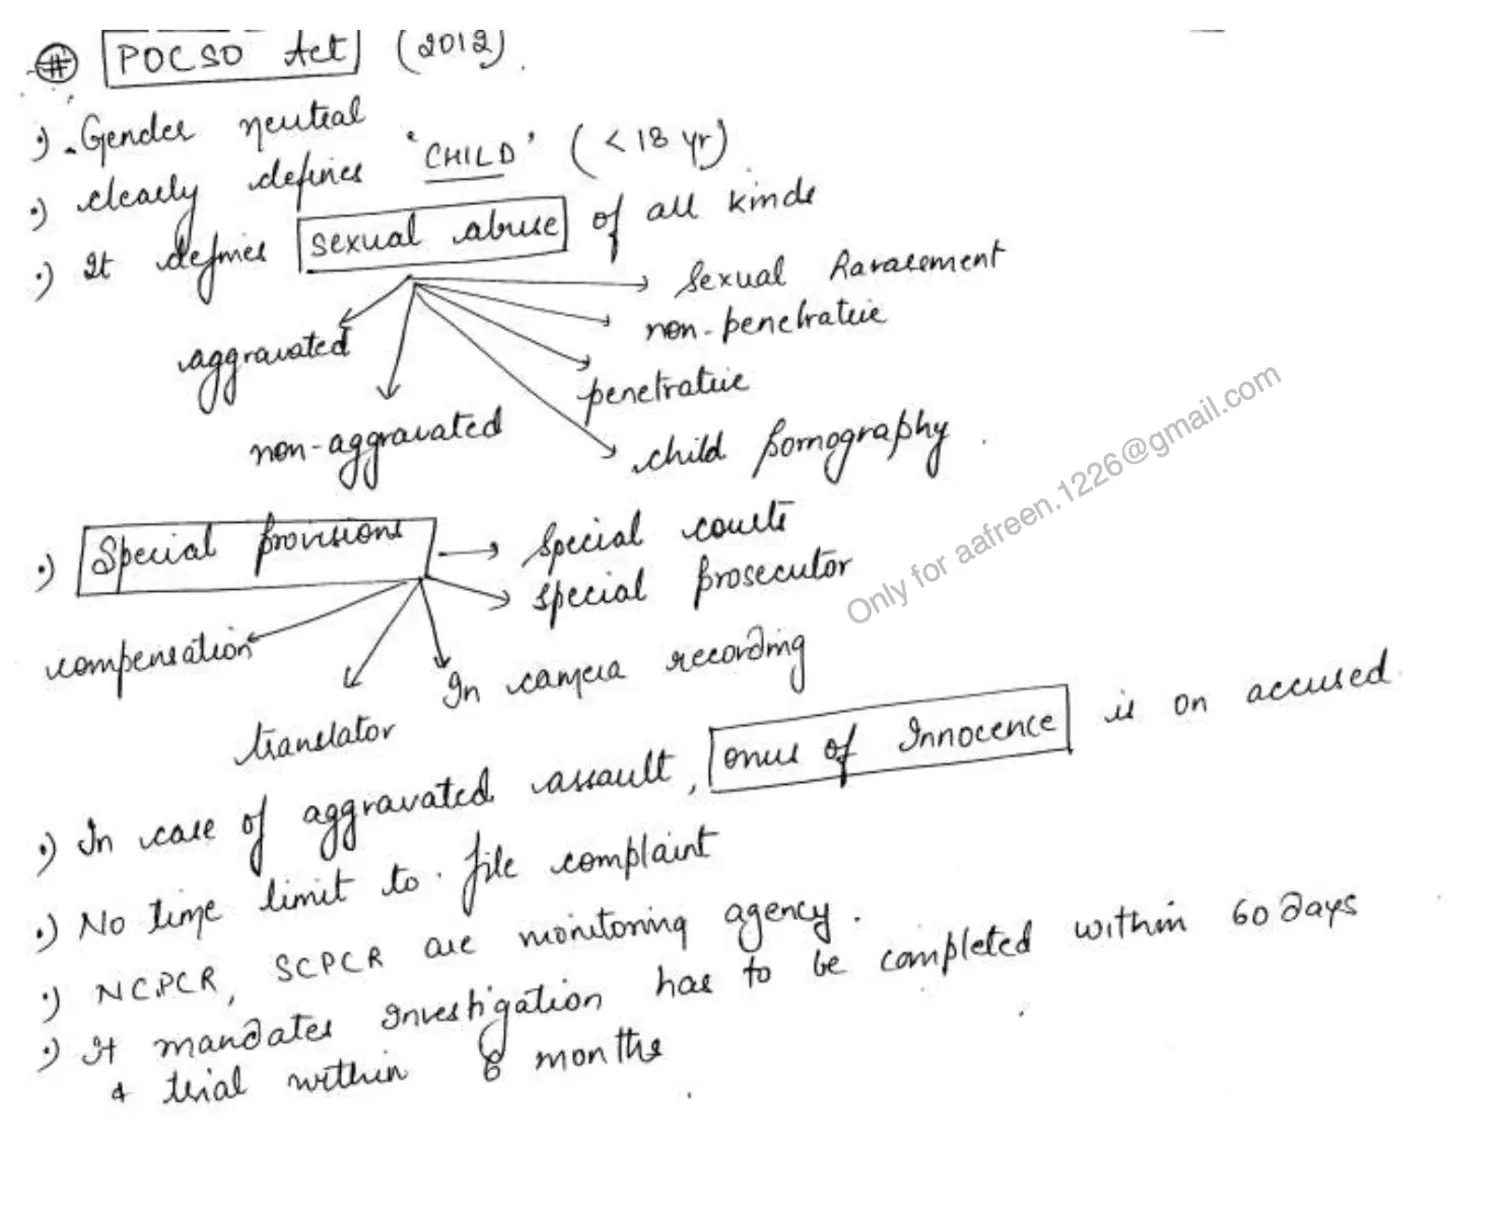 # POCSO Act (2012)
.) Gender neutral
.) clearly defines 'CHILD' (<18 yr)
.) It defines sexual abuse of all kinds
sexual harassment
non-penetrative
aggravated
penetrative
non-aggravated
child pornography.
.) Special provisions → special courts
special prosecutor
compensation
In camera recording
translator
.) In case of aggravated assault, onus of Innocence is on accused
.) No time limit to file complaint
.) NCPCR, SCPCR are monitoring agency.
.) It mandates investigation has to be completed within 60 days
& trial within 6 months
Only for aafreen.1226@gmail.com